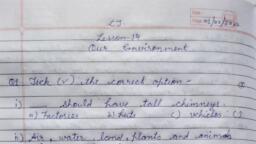 Lesson-14
Our Environment
Q1 Tick (✓) the correct option -
i) ___ should have tall chimneys.
a) Factories b) huts c) vehicles ( )
ii) Air, water, land, plants and animals